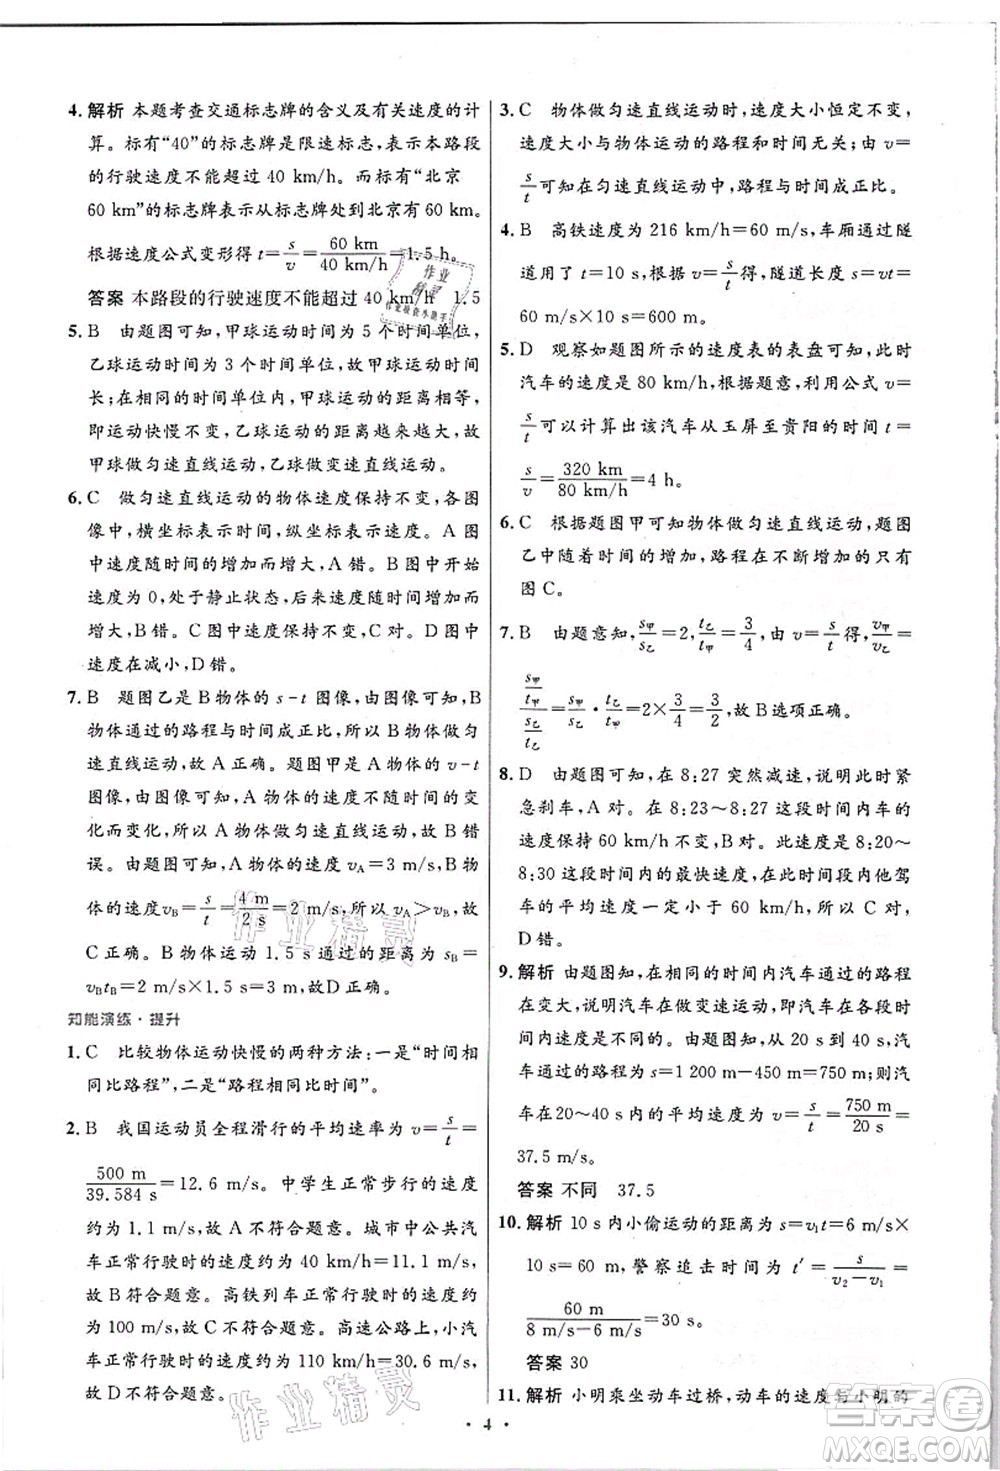 4. 解析 本题考查交通标志牌的含义及有关速度的计
算。标有“40”的标志牌是限速标志,表示本路段
的行驶速度不能超过 40 km/h。而标有“北京
60 km”的标志牌表示从标志牌处到北京有 60 km。
根据速度公式变形得 t=s/v=60 km/40 km/h=1.5 h。
答案 本路段的行驶速度不能超过 40 km/h 1.5
5. B 由题图可知,甲球运动时间为 5 个时间单位,
乙球运动时间为 3 个时间单位,故甲球运动时间
长;在相同的时间单位内,甲球运动的距离相等,
即运动快慢不变,乙球运动的距离越来越大,故
甲球做匀速直线运动,乙球做变速直线运动。
6. C 做匀速直线运动的物体速度保持不变,各图
像中,横坐标表示时间,纵坐标表示速度。A 图
中速度随时间增加而增加,A 错。B 图中开始
速度为 0,处于静止状态,后来速度随时间增加
而增加,B 错。C 图中速度保持不变,C 对。D 图中
速度在减小,D 错。
7. B 题图乙是 B 物体的 s-t 图像,由图像可知,B
物体通过的路程与时间成正比,所以 B 物体做匀
速直线运动,故 A 正确。题图甲是 A 物体的 v-t
图像,由图像可知,A 物体的速度不随时间的变
化而变化,所以 A 物体做匀速直线运动,故 B 错
误。由题图可知,A 物体的速度 vA=3 m/s,B 物
体的速度 vB=s/t=4 m/2 s=2 m/s,所以 vA>vB,故
C 正确。B 物体运动 1.5 s 通过的距离为 sB=
vBtB=2 m/s×1.5 s=3 m,故 D 正确。
知能演练·提升
1. C 比较物体运动快慢的两种方法:一是“时间相
同比路程”,二是“路程相同比时间”。
2. B 我国运动员全程滑行的平均速率为 v=s/t=
500 m/39.584 s=12.6 m/s。中学生正常步行的速度
约为 1.1 m/s,故 A 不符合题意。城市中公共汽
车正常行驶时的速度约为 40 km/h=11.1 m/s,
故 B 符合题意。高铁列车正常行驶时的速度约
为 100 m/s,故 C 不符合题意。高速公路上,小汽
车正常行驶时的速度约为 110 km/h=30.6 m/s,
故 D 不符合题意。
3. C 物体做匀速直线运动时,速度大小恒定不变,
速度大小与物体运动的路程和时间无关;由 v=
s/t可知在匀速直线运动中,路程与时间成正比。
4. B 高铁速度为 216 km/h=60 m/s,车厢通过隧
道用了 t=10 s,根据 v=s/t可得,隧道长度 s=vt=
60 m/s×10 s=600 m。
5. D 观察如题图所示的速度表的表盘可知,此时
汽车的速度是 80 km/h,根据题意,利用公式 v=
s/t可以计算出该汽车从玉屏至贵阳的时间 t=
s/v=320 km/80 km/h=4 h。
6. C 根据题图甲可知物体做匀速直线运动,题图
乙中随着时间的增加,路程在不断增加的只有
图 C。
7. B 由题意知,s甲/s乙=2,t乙/t甲=3/4,由 v=s/t得,v甲/v乙=
(s甲/t甲)/(s乙/t乙)=s甲/s乙·t乙/t甲=2×3/4=3/2,故 B 选项正确。
8. D 由题图可知,在 8:27 突然减速,说明此时紧
急刹车,A 对。在 8:23～8:27 这段时间内车的
速度保持 60 km/h 不变,B 对。此速度是 8:20～
8:30 这段时间内的最快速度,因此该时间段内他驾
车的平均速度一定小于 60 km/h,所以 C 对,
D 错。
9. 解析 由题图知,在相同的时间内汽车通过的路程
在变大,说明汽车在做变速运动,即汽车在各段时
间内的速度不同;由题图知,从 20 s 到 40 s,汽车
通过的路程为 s=1 200 m-450 m=750 m;则汽
车在20～40 s 内的平均速度为 v=s/t=750 m/20 s=
37.5 m/s。
答案 不同 37.5
10. 解析 10 s 内小偷运动的距离为 s=v1t=6 m/s×
10 s=60 m,警察追击时间为 t′=s/(v2-v1)=
60 m/(8 m/s-6 m/s)=30 s。
答案 30
11. 解析 小明乘坐动车过桥,动车的速度与小明的
· 4 ·
作业精灵
作业精灵
作业精灵
答案圈
MXQE.COM